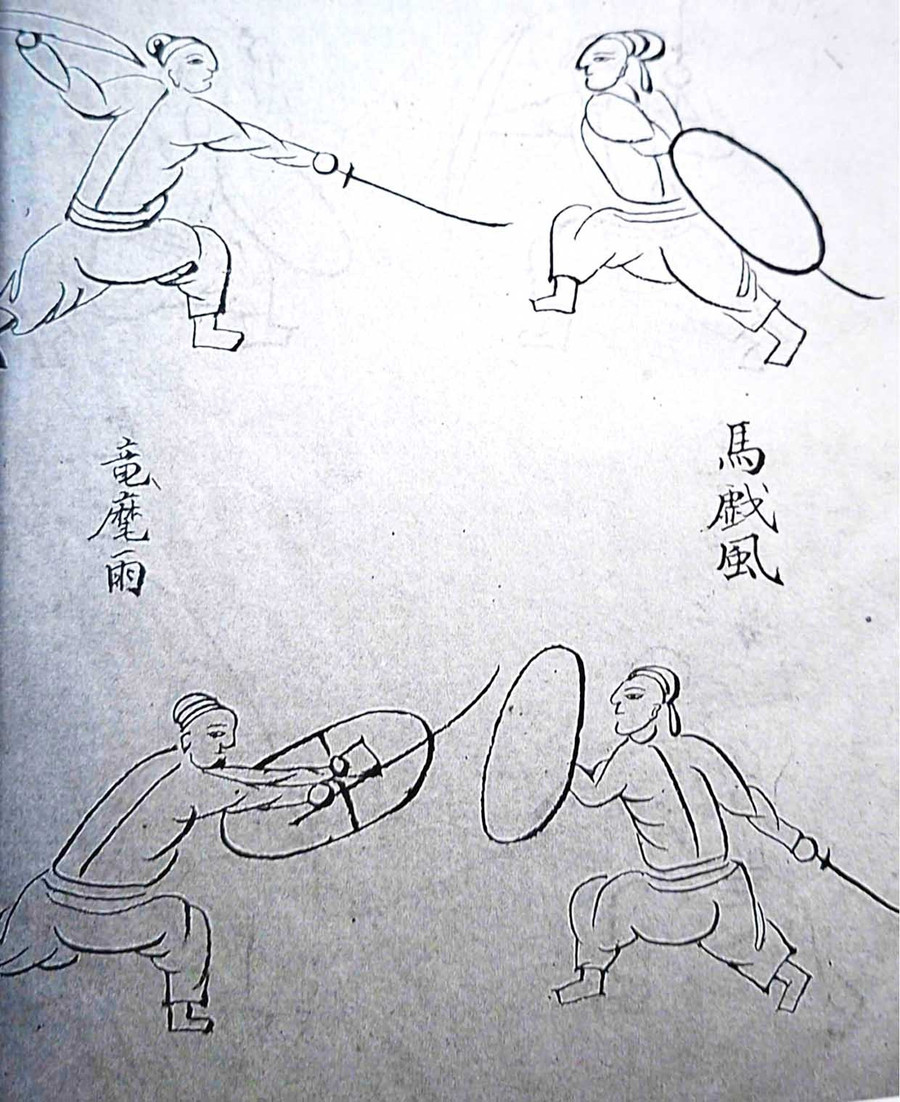 馬戯風
竜麾雨